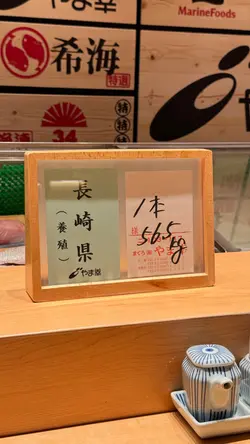 MarineFoods
希海
特選
やま幸
34
長崎県
(養殖)
やま幸
1本
様
56.5
kg
まぐろ 卸 やま幸